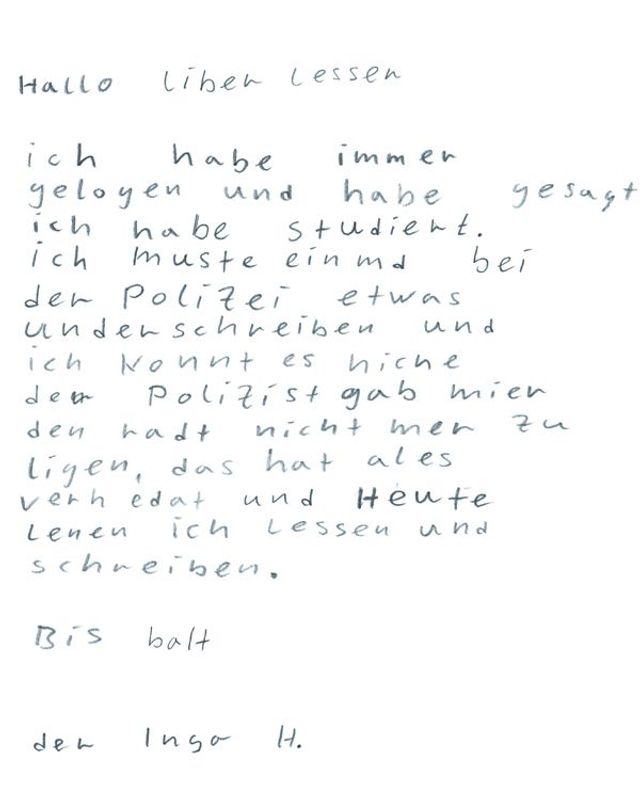 Hallo Liben Lessen
ich habe immer
gelogen und habe gesagt
ich habe studient.
ich muste einmd bei
der Polizei etwas
underschreiben und
ich konnt es niche
der Polizist gab mier
den radt nicht mer zu
ligen, das hat ales
verhedat und Heute
Lenen ich Lessen und
schreiben.
Bis balt
der Ingo H.